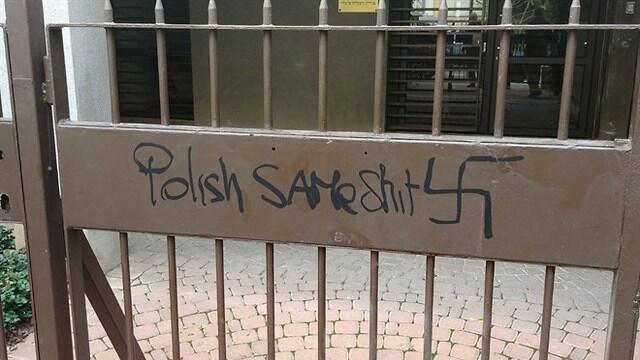 Polish SAMe Shit 卐